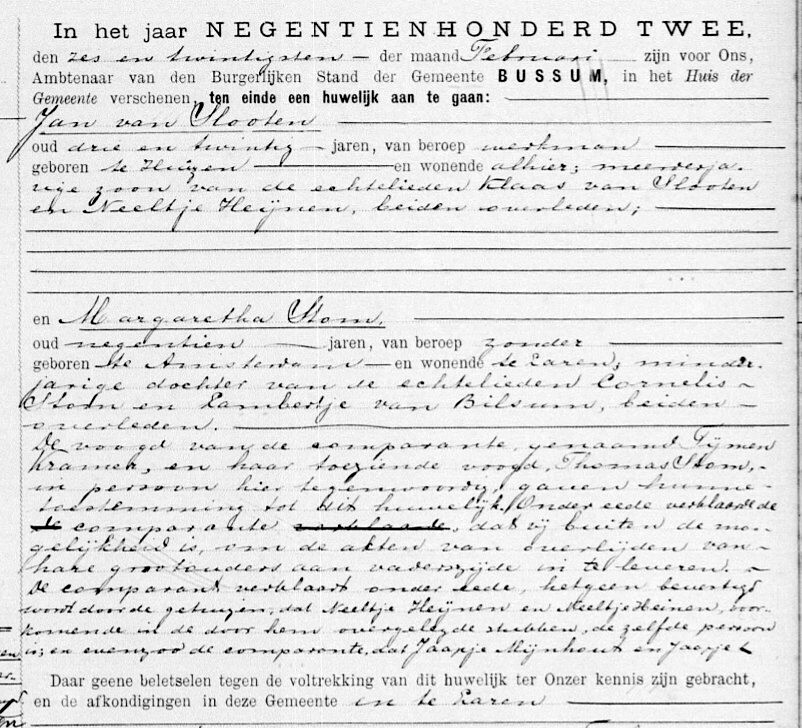 In het jaar NEGENTIENHONDERD TWEE,
den zes en twintigsten der maand Februari zijn voor Ons,
Ambtenaar van den Burgerlijken Stand der Gemeente BUSSUM, in het Huis der
Gemeente verschenen, ten einde een huwelijk aan te gaan:
Jan van Slooten
oud drie en twintig jaren, van beroep werkman
geboren te Huizen en wonende alhier; meerderja-
rige zoon van de echtelieden Klaas van Slooten
en Neeltje Heijnen, beiden overleden;
en Margaretha Stom,
oud negentien jaren, van beroep zonder
geboren te Amsterdam en wonende te Laren; minder-
jarige dochter van de echtelieden Cornelis
Stom en Lambertje van Bilsum, beiden
overleden.
De voogd van de comparante, genaamd Tijmen
Kramer, en haar toeziende voogd, Thomas Stom,
in persoon hier tegenwoordig, gaven hunne
toestemming tot dit huwelijk. Onder eede verklaarde de
comparante verklaarde, dat zij buiten de mo-
gelijkheid is, om de akten van overlijden van
hare grootouders aan vaderszijde in te leveren.
De comparant verklaart onder eede, hetgeen bevestigd
wordt door de getuigen, dat Neeltje Heijnen en Neeltje Heinen, voor-
komende in de door hem overgelegde stukken, de zelfde persoon
is; en evenzoo de comparante, dat Jaapje Mijnhout en Jaapje
Daar geene beletselen tegen de voltrekking van dit huwelijk ter Onzer kennis zijn gebracht,
en de afkondigingen in deze Gemeente en te Laren